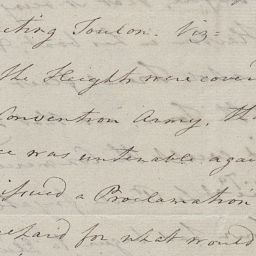 cting Toulon. Viz=
The Heights were cover
Convention Army, Th
ce was untenable agai
issued a Proclamation
repard for what would